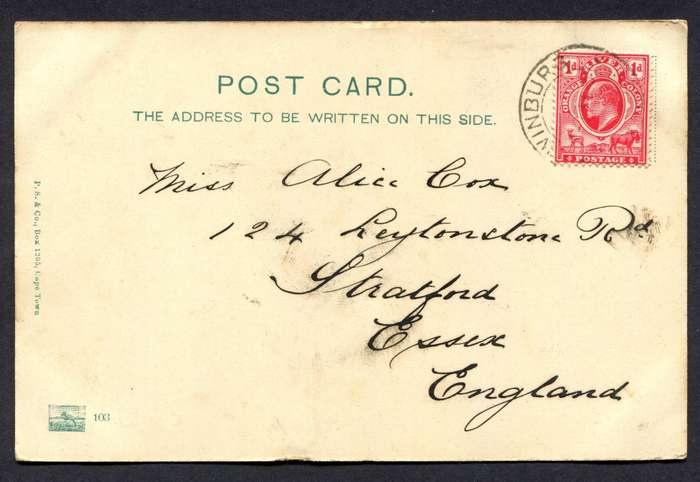 POST CARD.
THE ADDRESS TO BE WRITTEN ON THIS SIDE.
WINBURG
ORANGE RIVER COLONY
1d 1d
POSTAGE
Miss Alice Cox
124 Leytonstone Rd
Stratford
Essex
England
P. S. & Co., Box 1295, Cape Town
103